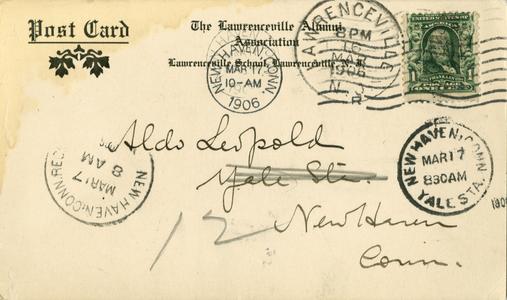 Post Card
The Lawrenceville Alumni
Association
Lawrenceville School, Lawrenceville N. J.
NEW HAVEN, CONN.
MAR 17
10-AM
1906
LAWRENCEVILLE
8 PM
16
MAR
1906
N. J.
UNITED STATES
FRANKLIN
POSTAGE
ONE
Aldo Leopold
Yale Sta.
New Haven
Conn.
12
NEW HAVEN, CONN. REC
MAR 17
8 AM
NEW HAVEN, CONN
MAR 17
830AM
YALE STA.
1906